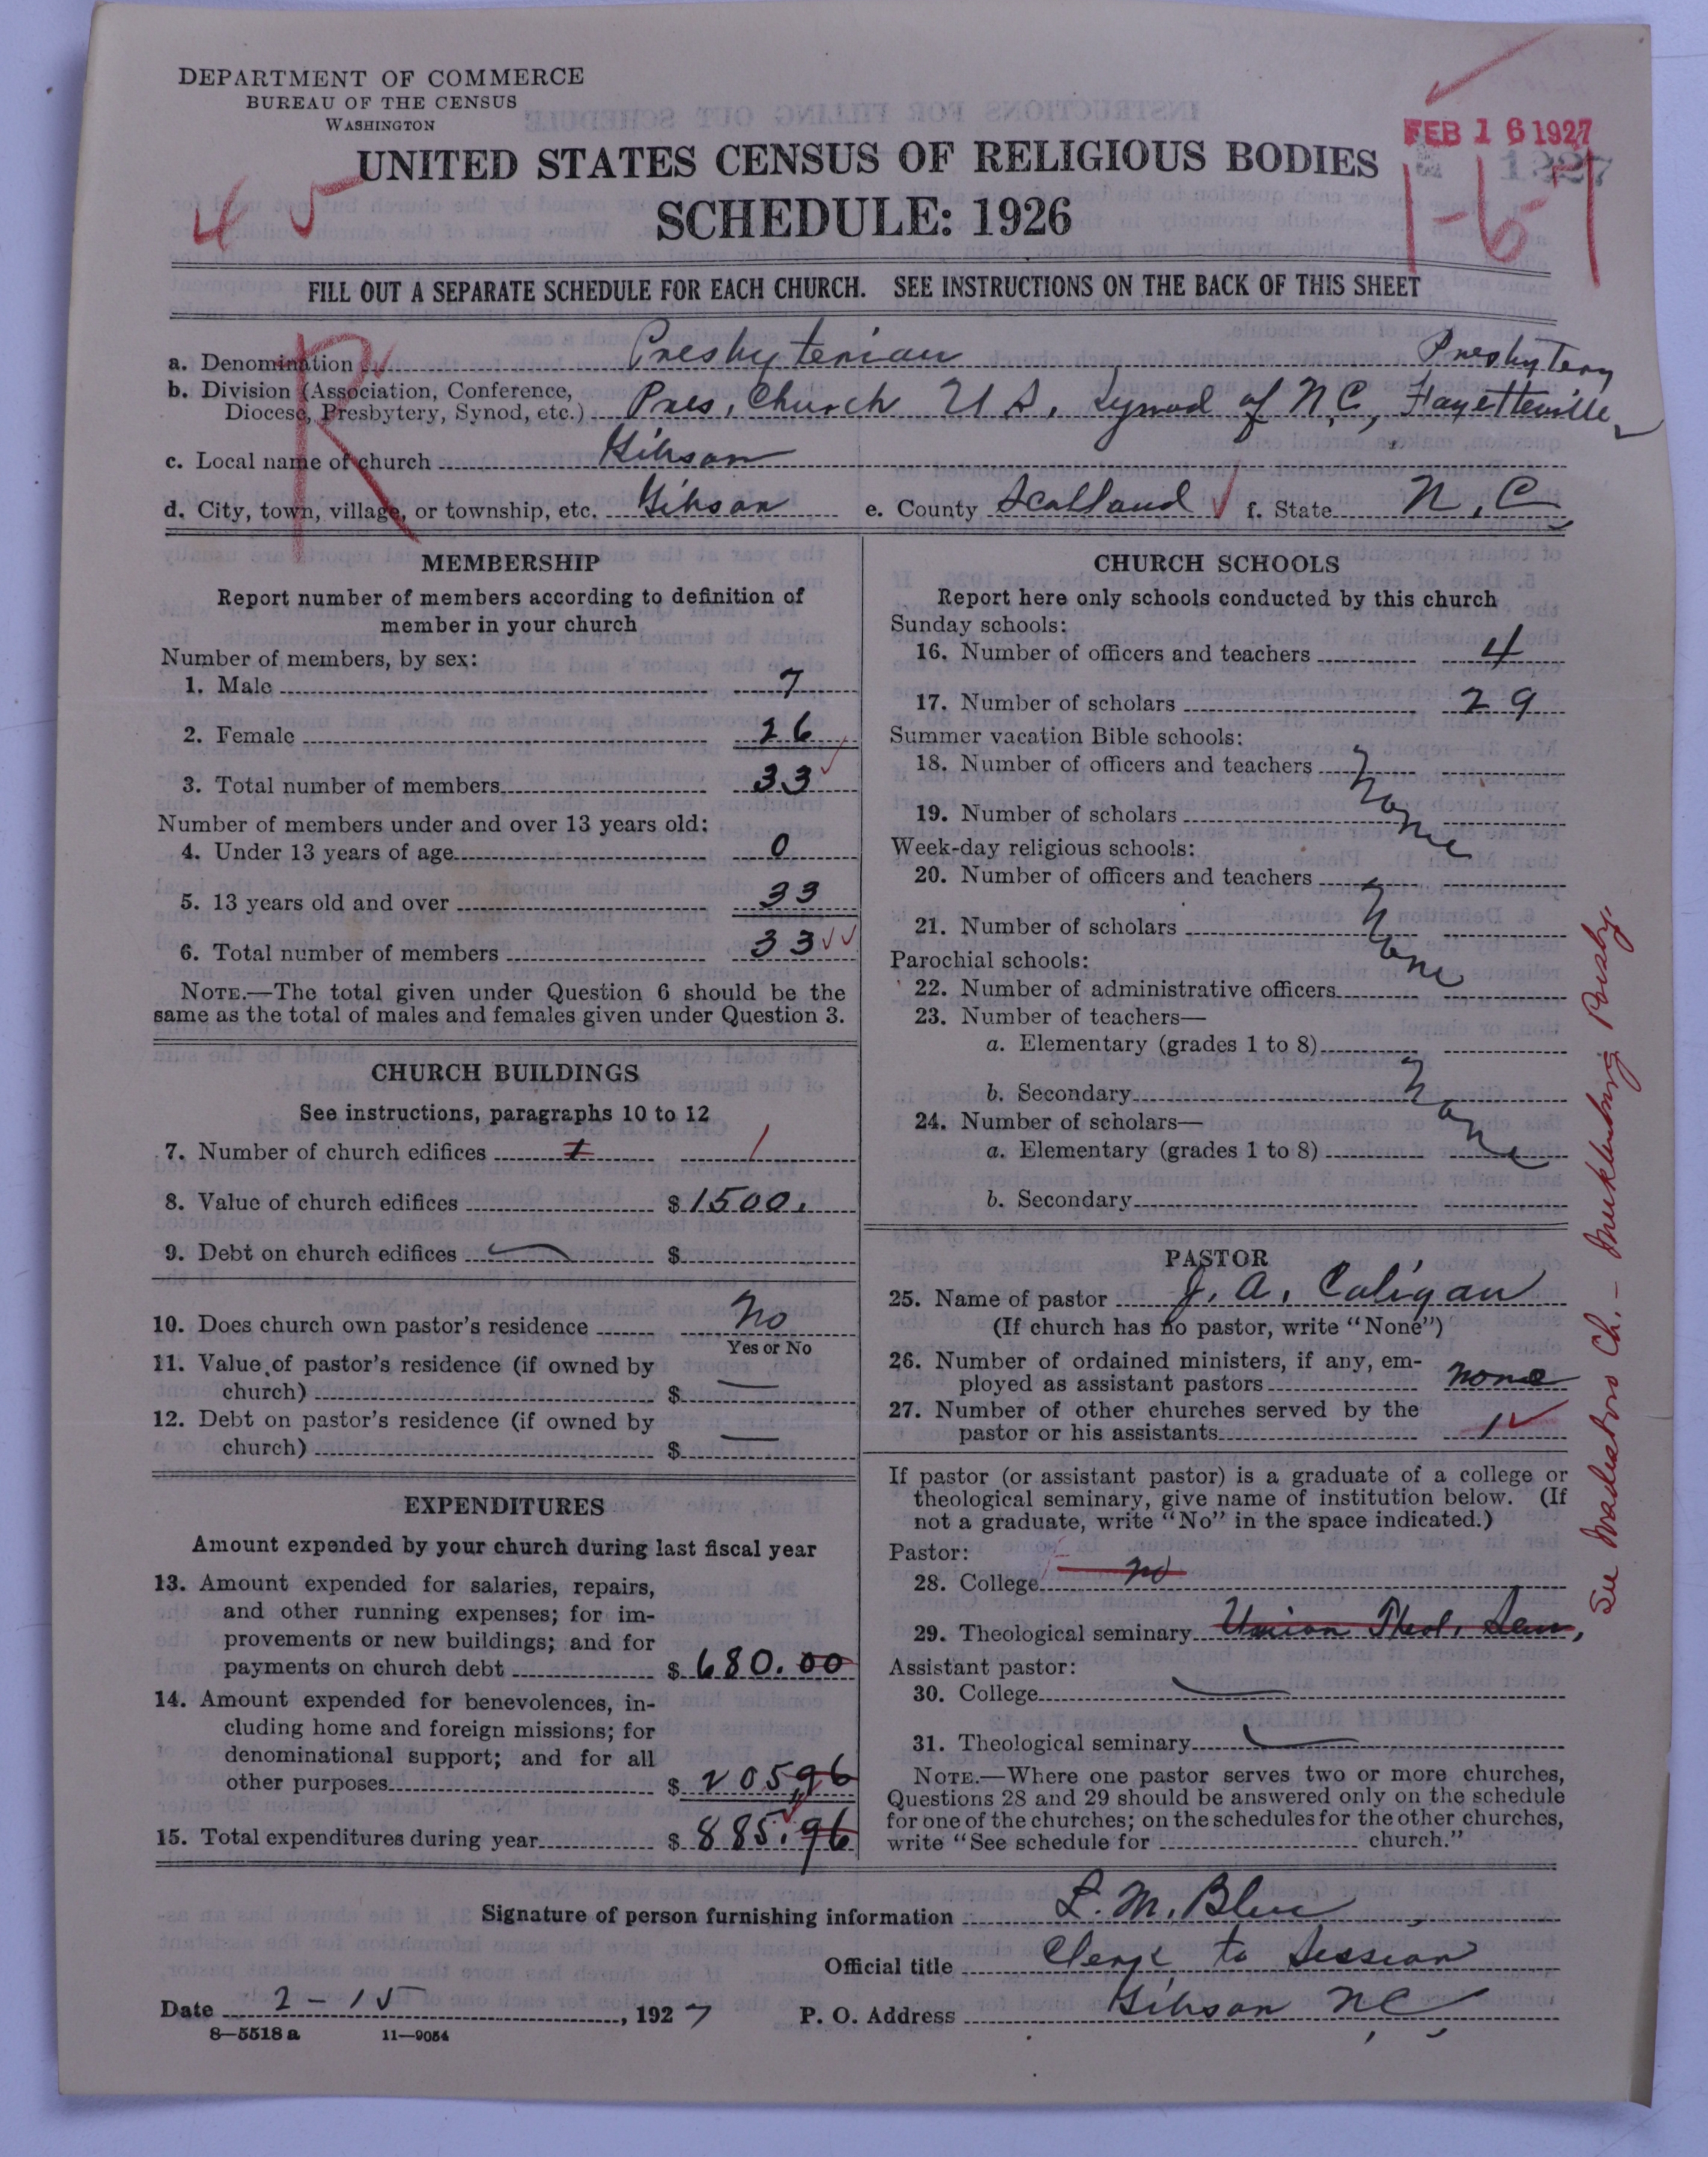 DEPARTMENT OF COMMERCE
BUREAU OF THE CENSUS
WASHINGTON
FEB 16 1927
1927
UNITED STATES CENSUS OF RELIGIOUS BODIES
45
1-15-1
SCHEDULE: 1926
FILL OUT A SEPARATE SCHEDULE FOR EACH CHURCH. SEE INSTRUCTIONS ON THE BACK OF THIS SHEET
R
a. Denomination Presbyterian Presbytery
b. Division (Association, Conference,
Diocese, Presbytery, Synod, etc.) Pres. Church U S. Synod of N.C., Fayetteville
c. Local name of church Gibson
d. City, town, village, or township, etc. Gibson e. County Scotland f. State N.C
MEMBERSHIP
Report number of members according to definition of
member in your church
Number of members, by sex:
1. Male 7
2. Female 26
3. Total number of members 33
Number of members under and over 13 years old:
4. Under 13 years of age 0
5. 13 years old and over 33
6. Total number of members 33
NOTE.—The total given under Question 6 should be the
same as the total of males and females given under Question 3.
CHURCH BUILDINGS
See instructions, paragraphs 10 to 12
7. Number of church edifices 1 1
8. Value of church edifices $ 1500.
9. Debt on church edifices — $
10. Does church own pastor's residence No
Yes or No
11. Value of pastor's residence (if owned by
church) $ —
12. Debt on pastor's residence (if owned by
church) $ —
EXPENDITURES
Amount expended by your church during last fiscal year
13. Amount expended for salaries, repairs,
and other running expenses; for im-
provements or new buildings; and for
payments on church debt $ 680.00
14. Amount expended for benevolences, in-
cluding home and foreign missions; for
denominational support; and for all
other purposes $ 205.96
15. Total expenditures during year $ 885.96
CHURCH SCHOOLS
Report here only schools conducted by this church
Sunday schools:
16. Number of officers and teachers 4
17. Number of scholars 29
Summer vacation Bible schools:
18. Number of officers and teachers None
19. Number of scholars
Week-day religious schools:
20. Number of officers and teachers None
21. Number of scholars
Parochial schools:
22. Number of administrative officers
23. Number of teachers—
a. Elementary (grades 1 to 8)
b. Secondary None
24. Number of scholars—
a. Elementary (grades 1 to 8)
b. Secondary
PASTOR
25. Name of pastor J. A. Caligan
(If church has no pastor, write "None")
26. Number of ordained ministers, if any, em-
ployed as assistant pastors none
27. Number of other churches served by the
pastor or his assistants 1
If pastor (or assistant pastor) is a graduate of a college or
theological seminary, give name of institution below. (If
not a graduate, write "No" in the space indicated.)
Pastor:
28. College no
29. Theological seminary Union Theol. Sem.
Assistant pastor:
30. College —
31. Theological seminary —
NOTE.—Where one pastor serves two or more churches,
Questions 28 and 29 should be answered only on the schedule
for one of the churches; on the schedules for the other churches,
write "See schedule for church."
Signature of person furnishing information L. M. Blue
Official title Clerk to Session
Date 2-15, 1927 P. O. Address Gibson N.C.
8—5518 a 11—9054
Ch. - Mecklenburg Presby.